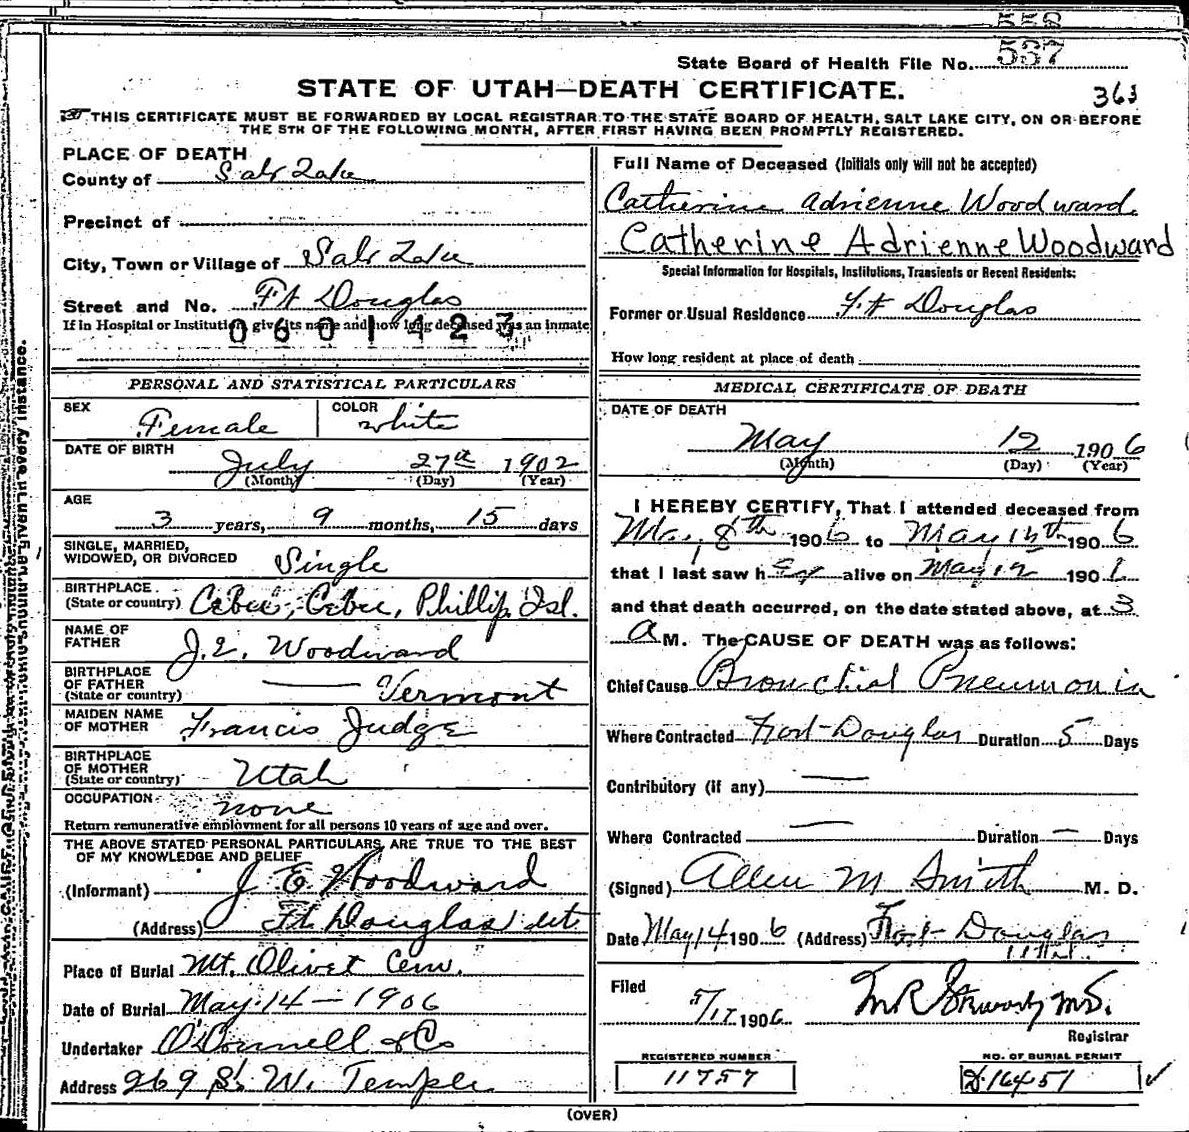 558
537
State Board of Health File No.
STATE OF UTAH—DEATH CERTIFICATE.
363
THIS CERTIFICATE MUST BE FORWARDED BY LOCAL REGISTRAR TO THE STATE BOARD OF HEALTH, SALT LAKE CITY, ON OR BEFORE
THE 5TH OF THE FOLLOWING MONTH, AFTER FIRST HAVING BEEN PROMPTLY REGISTERED.
PLACE OF DEATH
County of Salt Lake
Precinct of
City, Town or Village of Salt Lake
Street and No. Ft Douglas
If in Hospital or Institution, give its name and how long deceased was an inmate
0601423
PERSONAL AND STATISTICAL PARTICULARS
SEX Female COLOR white
DATE OF BIRTH July 27th 1902
(Month) (Day) (Year)
AGE
3 years, 9 months, 15 days
SINGLE, MARRIED,
WIDOWED, OR DIVORCED Single
BIRTHPLACE
(State or country) Cebu, Cebu, Phillip. Isl.
NAME OF
FATHER J. E. Woodward
BIRTHPLACE
OF FATHER
(State or country) Vermont
MAIDEN NAME
OF MOTHER Francis Judge
BIRTHPLACE
OF MOTHER
(State or country) Utah
OCCUPATION none
Return remunerative employment for all persons 10 years of age and over.
THE ABOVE STATED PERSONAL PARTICULARS ARE TRUE TO THE BEST
OF MY KNOWLEDGE AND BELIEF
(Informant) J E Woodward
(Address) Ft Douglas Ut
Place of Burial Mt. Olivet Cem.
Date of Burial May 14 — 1906
Undertaker O'Donnell & Co
Address 269 So. W. Temple
Full Name of Deceased (Initials only will not be accepted)
Catherine Adrienne Woodward.
Catherine Adrienne Woodward
Special Information for Hospitals, Institutions, Transients or Recent Residents:
Former or Usual Residence Ft Douglas
How long resident at place of death
MEDICAL CERTIFICATE OF DEATH
DATE OF DEATH
May 12 1906
(Month) (Day) (Year)
I HEREBY CERTIFY, That I attended deceased from
May 8th 1906 to May 12th 1906
that I last saw her alive on May 12 1906
and that death occurred, on the date stated above, at 3
a M. The CAUSE OF DEATH was as follows:
Chief Cause Bronchial Pneumonia
Where Contracted Fort Douglas Duration 5 Days
Contributory (if any) —
Where Contracted — Duration — Days
(Signed) Allen M Smith M. D.
Date May 14 1906 (Address) Fort Douglas
Utah.
Filed
5/17 1906
Registrar
REGISTERED NUMBER
11757
NO. OF BURIAL PERMIT
D.16451
(OVER)